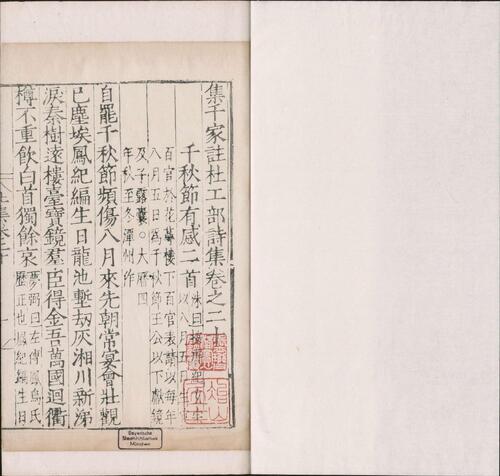 集千家註杜工部詩集卷之二十
千秋節有感二首
百官於花萼樓下百官表請以每年
八月五日爲千秋節王公以下獻鏡
及承露囊○大曆四
年秋至冬潭州作
自罷千秋節頻傷八月來先朝常宴會壯觀
已塵埃鳳紀編生日龍池塹劫灰湘川新涕
淚秦樹遠樓臺寶鏡羣臣得金吾萬國迴衢
樽不重飲白首獨餘哀
夢弼曰左傳鳳鳥氏
歷正也鳳紀編生日
Bayerische
Staatsbibliothek
München